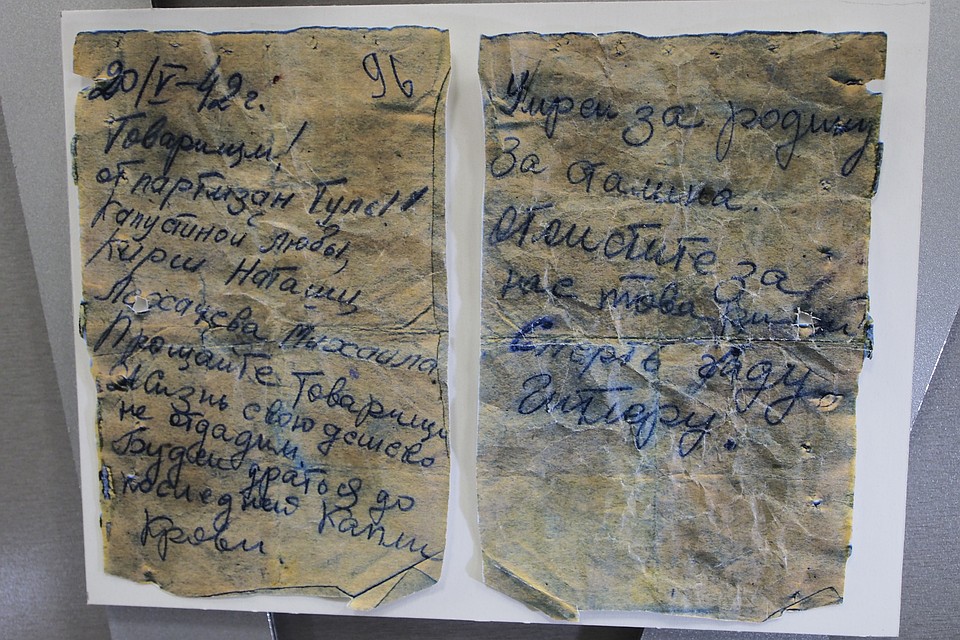 96
20/V-42 г.
Товарищи!
от партизан Тулы!
Капустиной Любы,
Кирш Наташи,
Лахачева Михаила.
Прощайте Товарищи
Жизнь свою дешево
не отдадим.
Будем драться до
последней Капли
Крови.
Умрем за родину
За Сталина.
Отомстите за
нас товарищи!
Смерть гаду
Гитлеру.